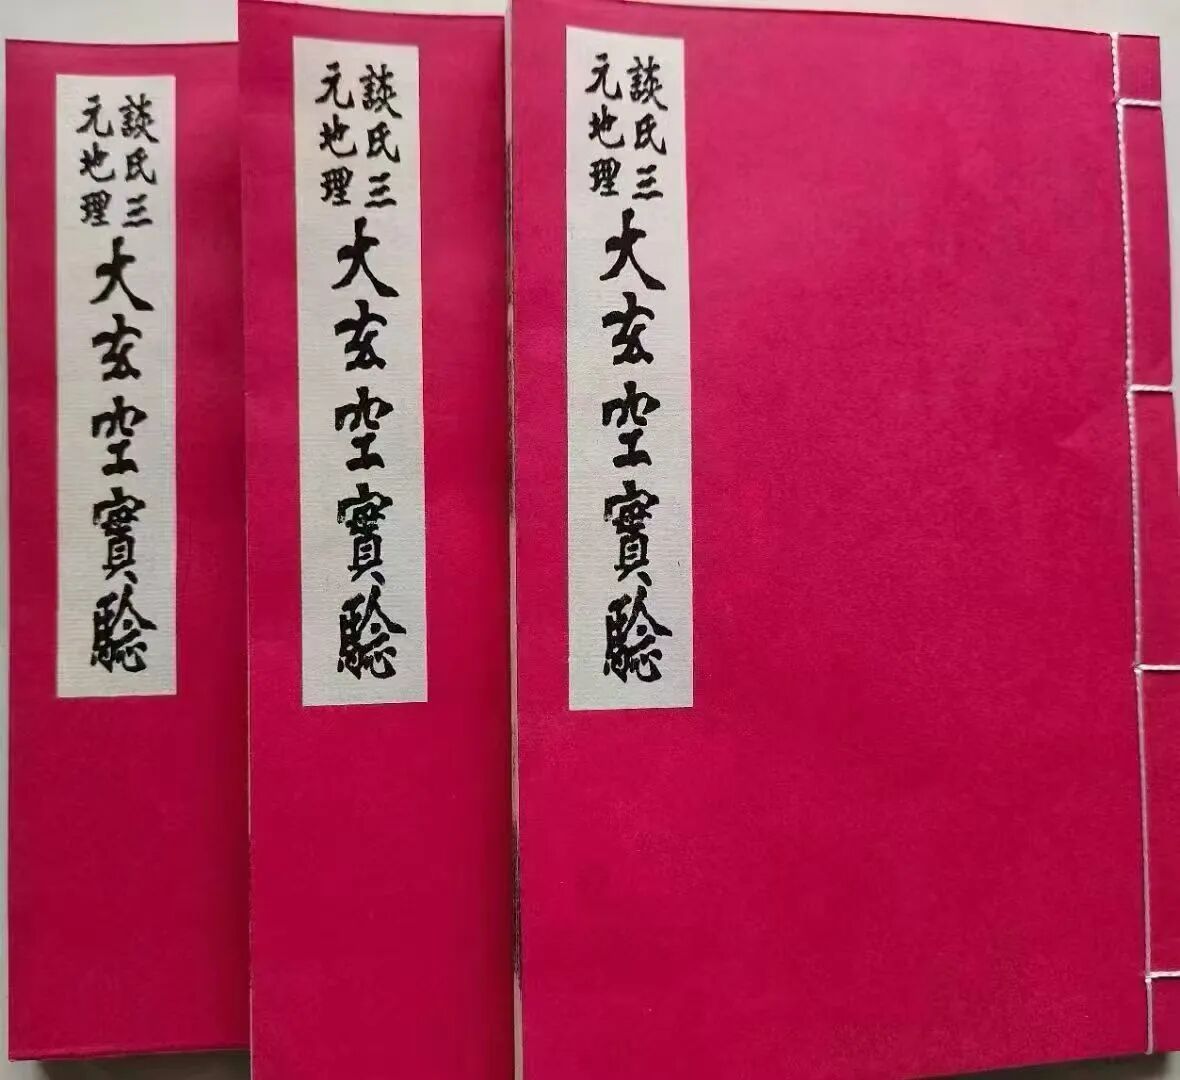 談氏三
元地理
大玄空實驗
談氏三
元地理
大玄空實驗
談氏三
元地理
大玄空實驗